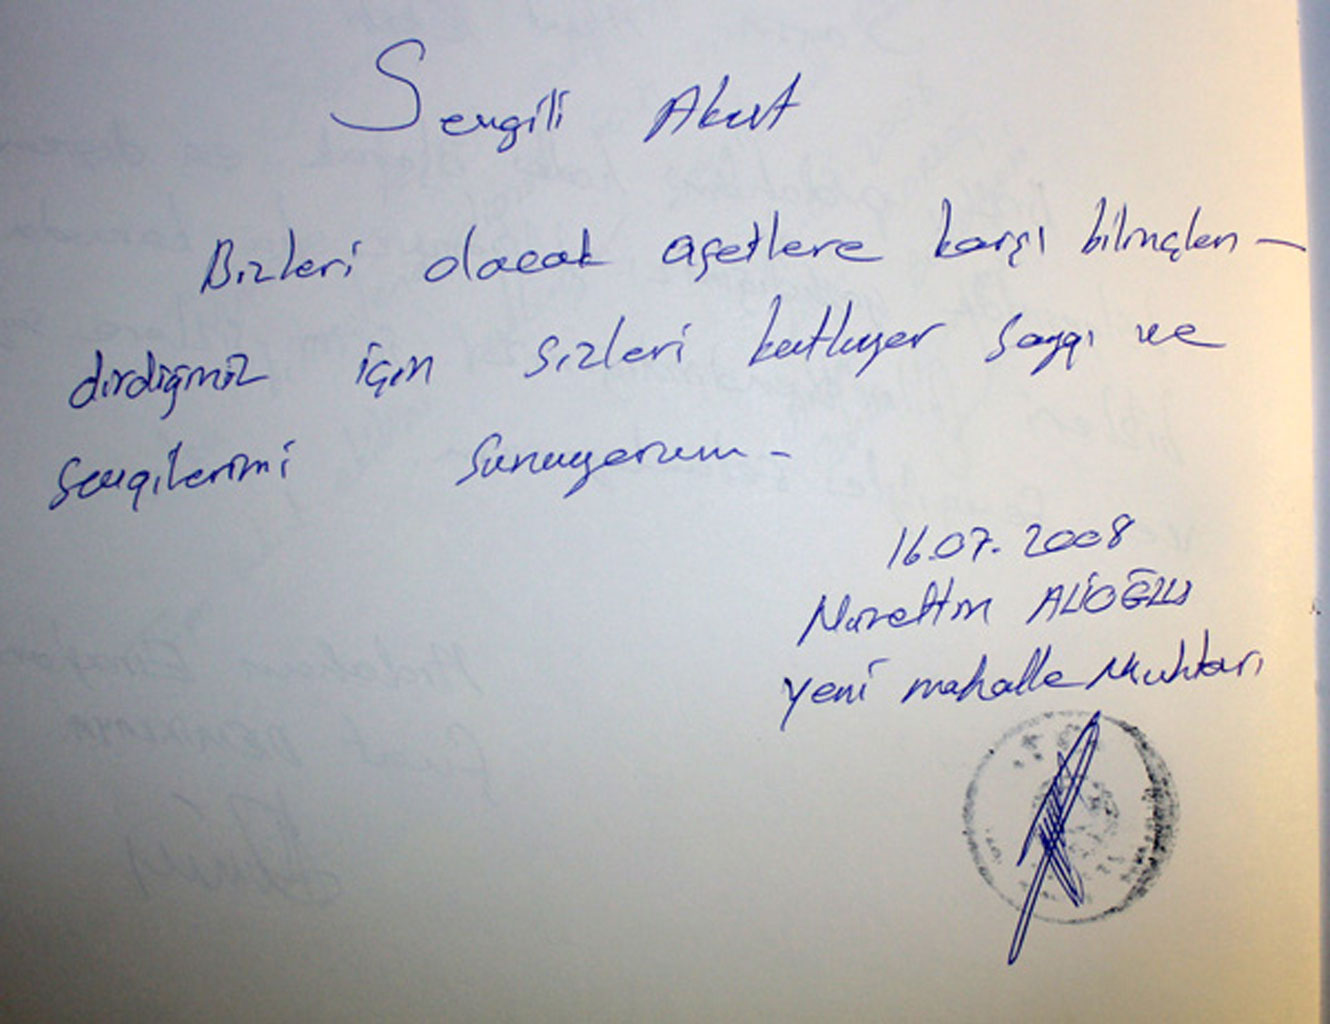 Sevgili Akut
Bizleri olacak afetlere karşı bilinçlen-
dirdiğiniz için sizleri kutluyor saygı ve
sevgilerimi sunuyorum-
16.07.2008
Nurettin ALİOĞLU
Yeni mahalle Muhtarı